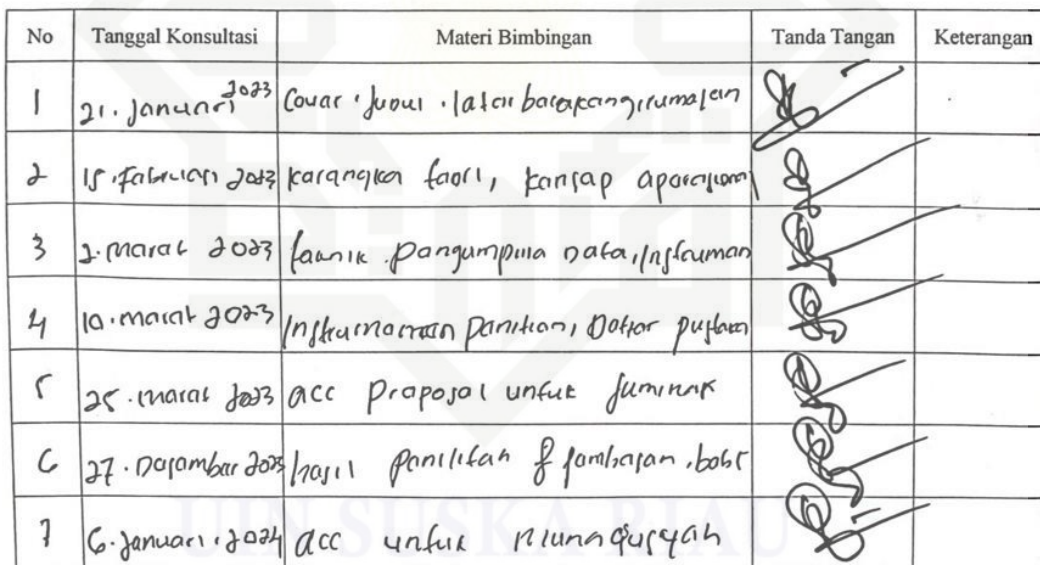 No Tanggal Konsultasi Materi Bimbingan Tanda Tangan Keterangan
1 21. Januari 2023 Cover. Judul. latar belakang, rumusan
2 15. Februari 2023 karangka teori, konsep operasional
3 2. maret 2023 Teknik Pengumpula Data, Instrumen
4 10. maret 2023 Instrumen Penitian, Daftar pustaka
5 25. maret 2023 acc proposal untuk
6 27. Desember 2023 hasil penilitan &
7 6. Januari. 2024 acc untuk munaqusyah
UIN SUSKA RIAU